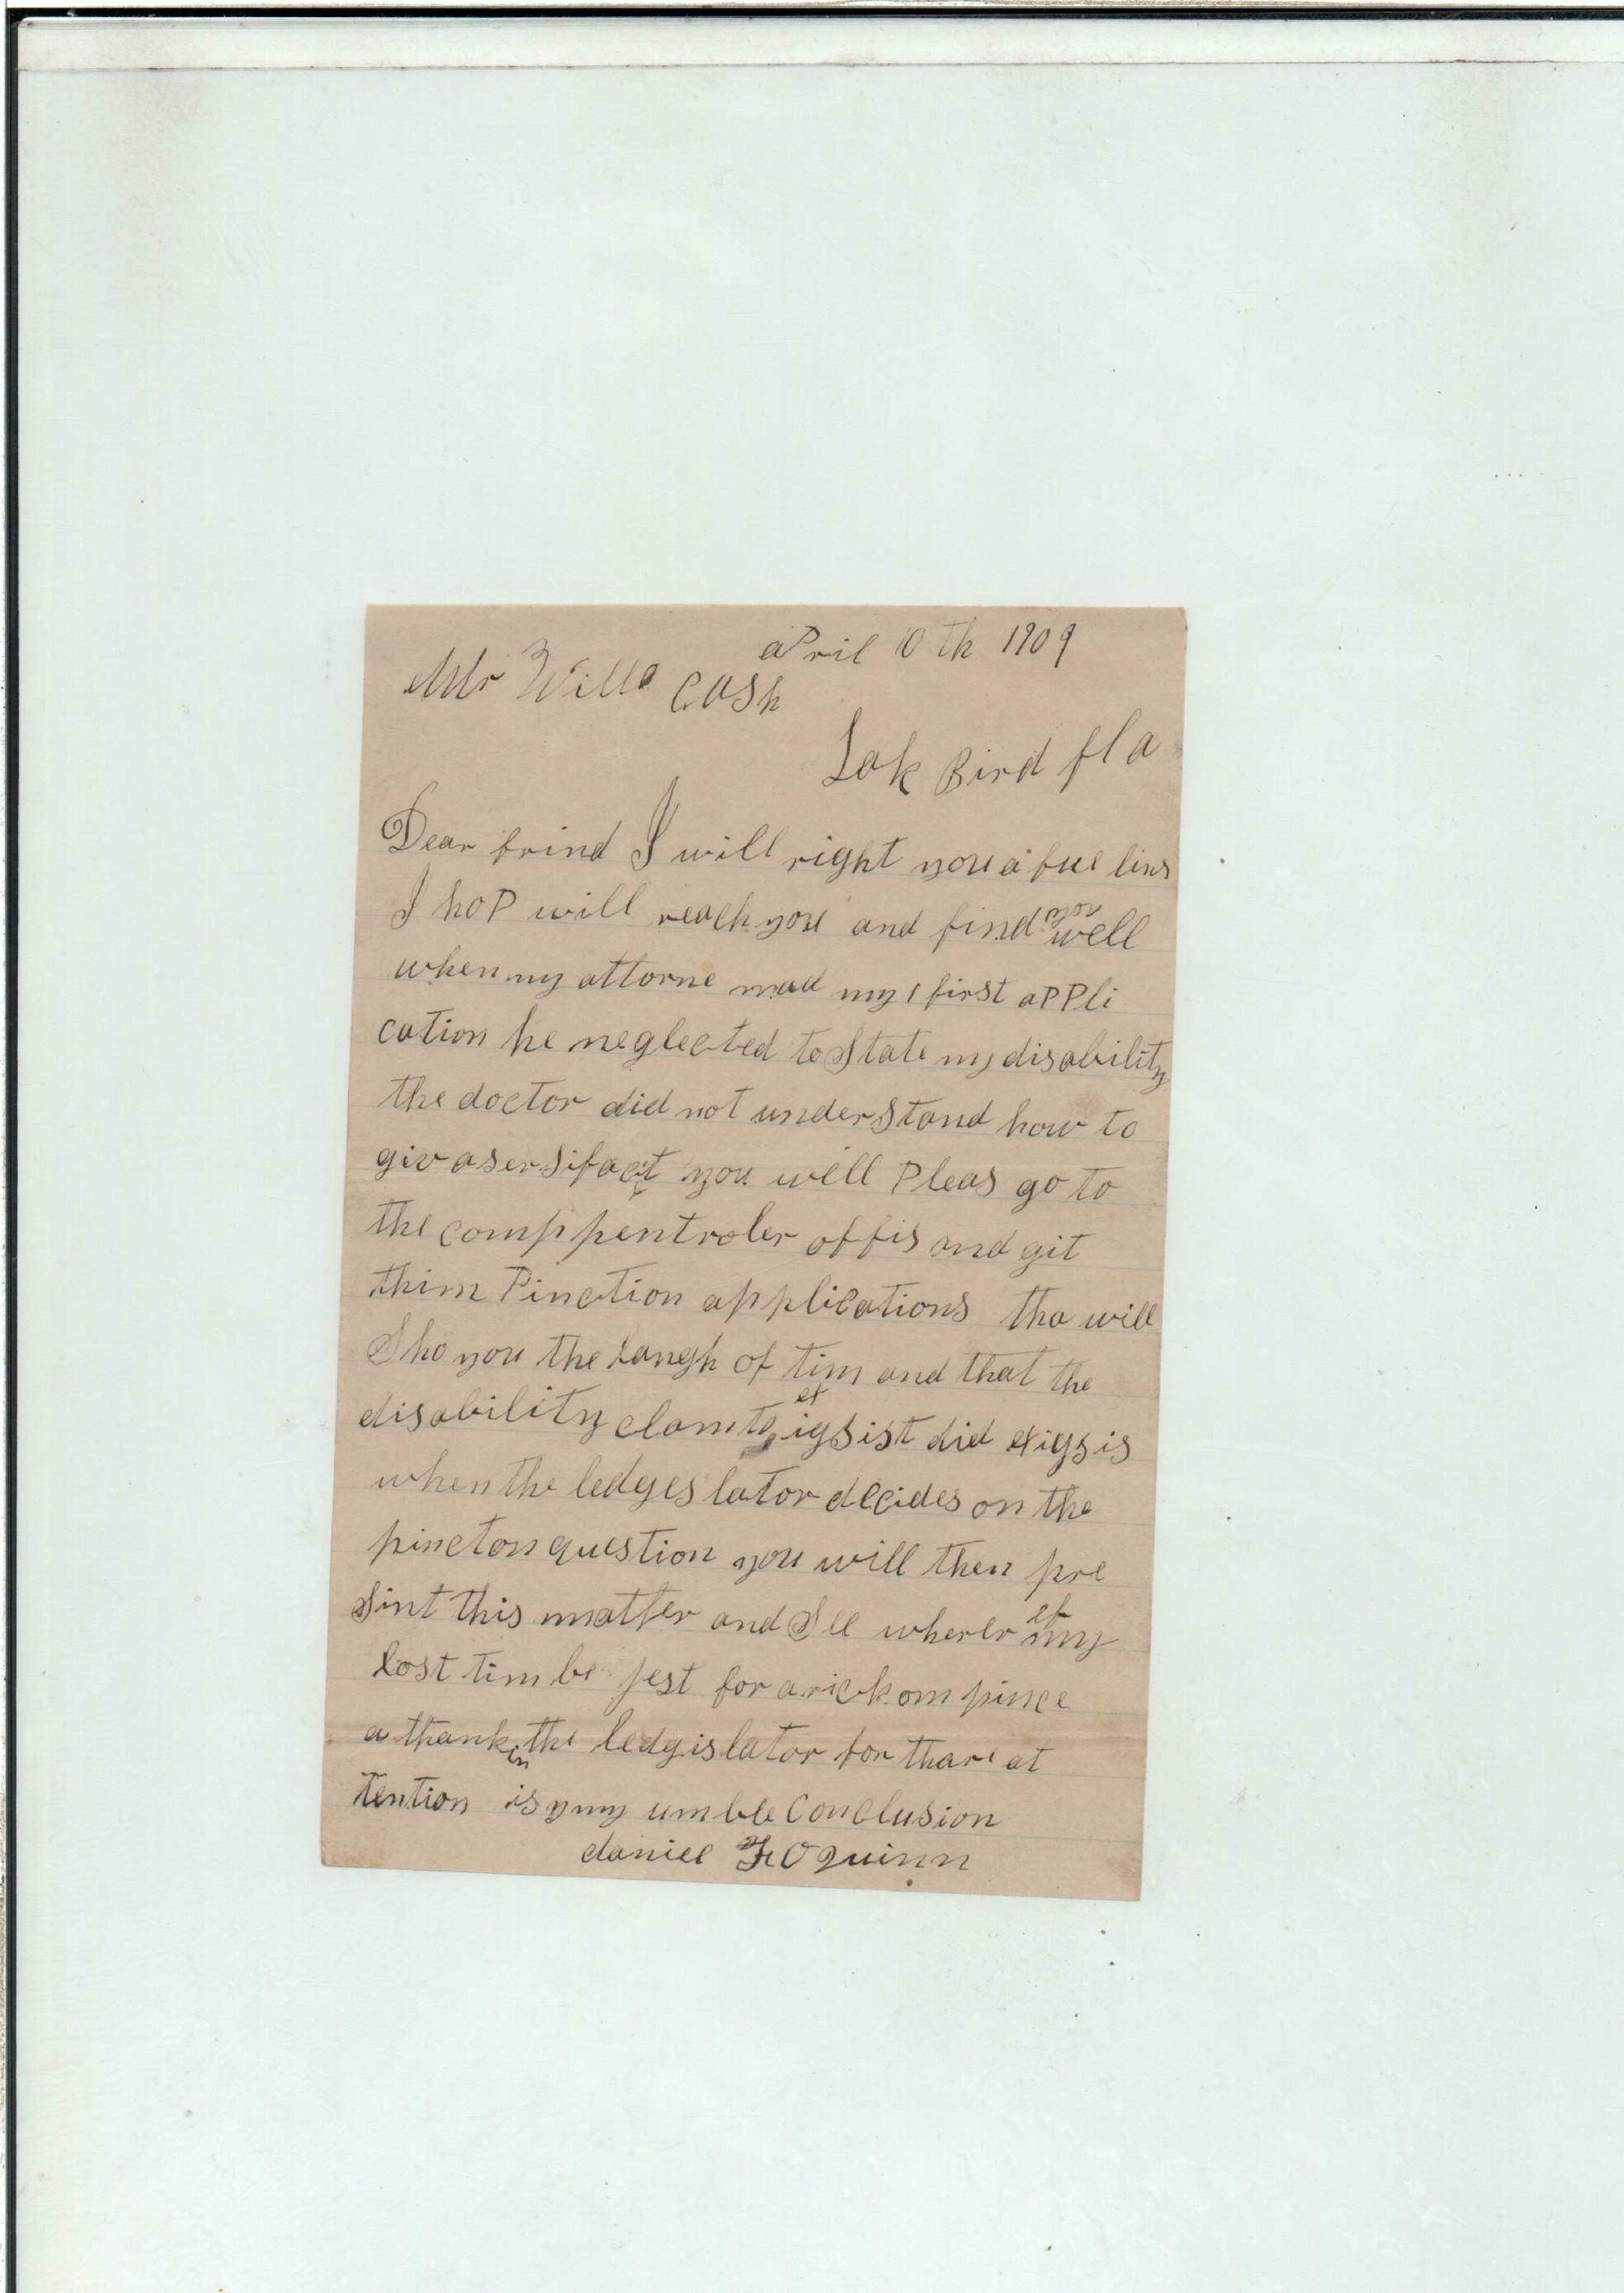 april 10th 1909
Mr Will Cash
Lak Bird fla
Dear frind I will right you a fue lins
I hoP will reach you and find you well
when my attorne mad my first aPPli
cation he neglected to State my disability
the doctor did not understand how to
giv a sersifact you will Pleas go to
the comppentroler offis and git
thim Pinction applications tha will
Sho you the langh of tim and that the
disability clam to ex igsist did exigsis
when the ledgeslator decides on the
pincton question you will then pre
sint this matter and See wherer ef my
lost tim be jest for a rickompince
a thank in the ledgislator for thare at
tention is my umble Conclusion
daniel F OQuinn